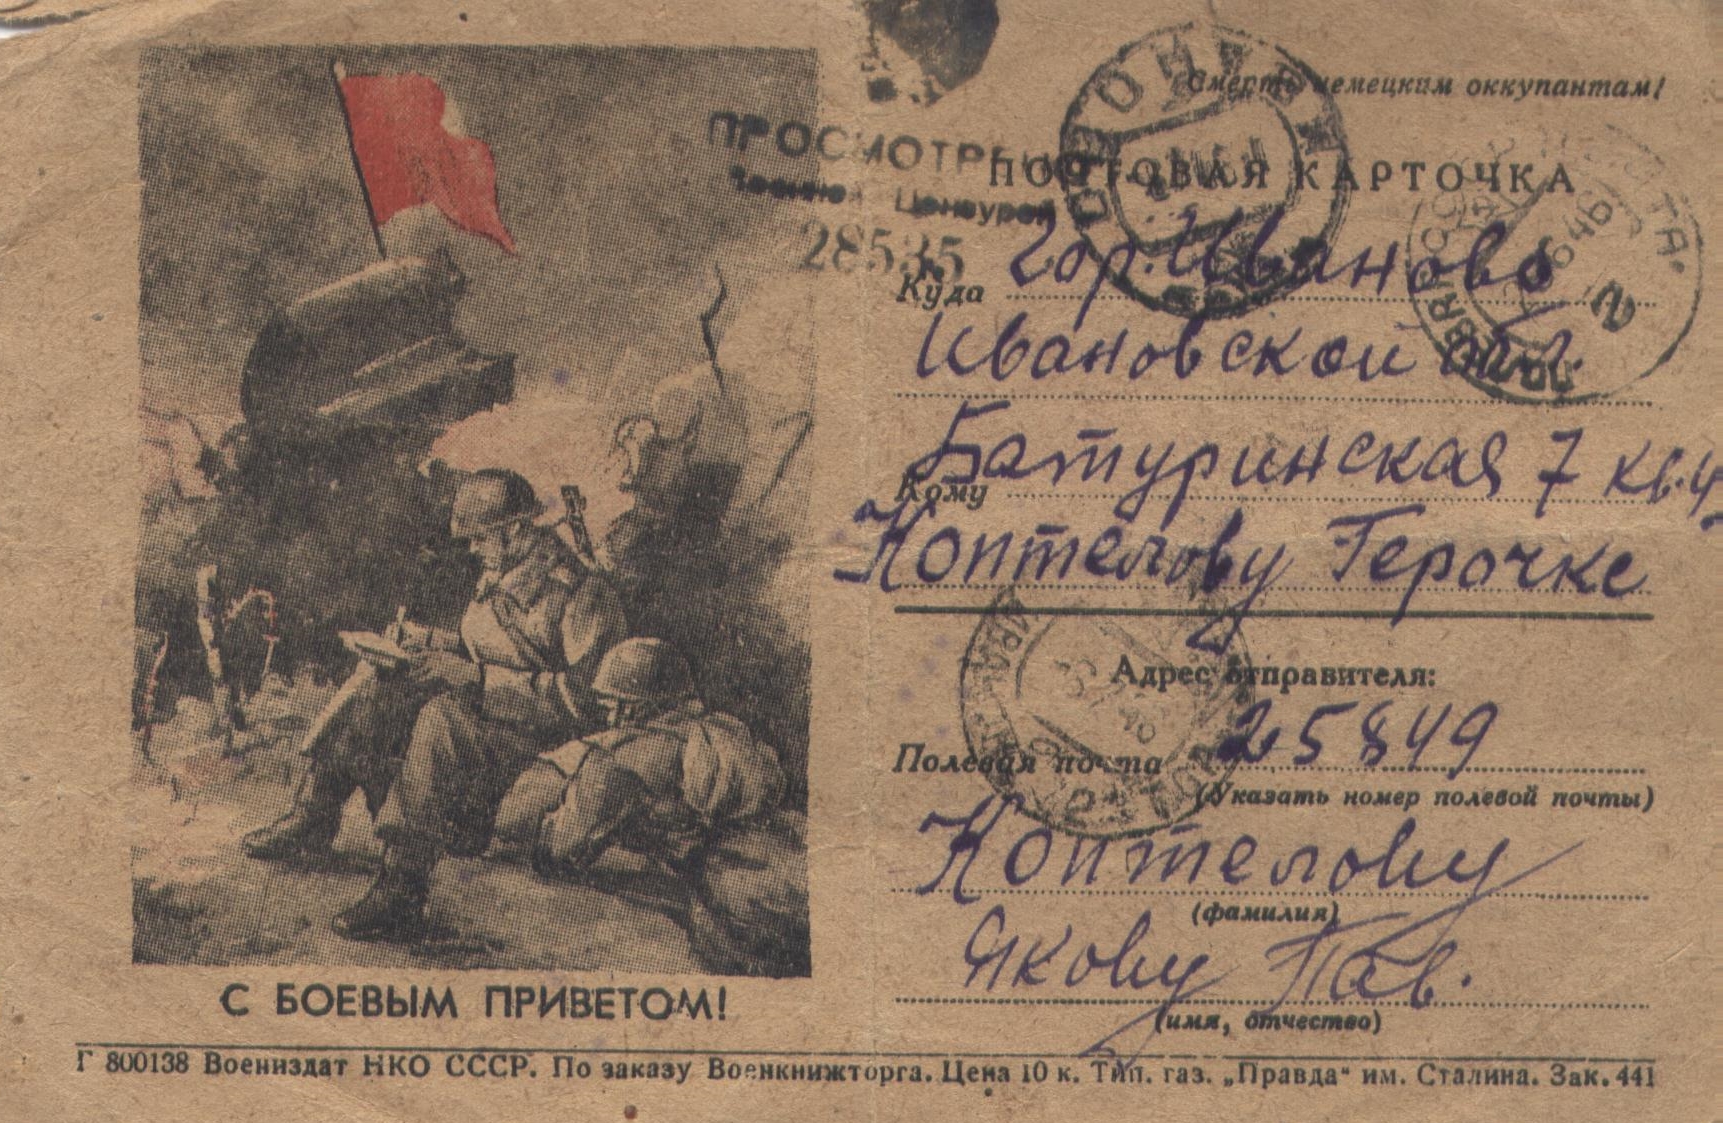 Смерть немецким оккупантам!
ПРОСМОТРЕНО
Военной Цензурой
28535
ПОЧТОВАЯ КАРТОЧКА
Куда гор. Иваново
Ивановской обл.
Батуринская 7 кв. 4
Кому
Коптелову Герочке
Адрес отправителя:
Полевая почта 25849
(Указать номер полевой почты)
Коптелову
(фамилия)
Якову Пав.
(имя, отчество)
С БОЕВЫМ ПРИВЕТОМ!
Г 800138 Воениздат НКО СССР. По заказу Военкнижторга. Цена 10 к. Тип. газ. „Правда“ им. Сталина. Зак. 441